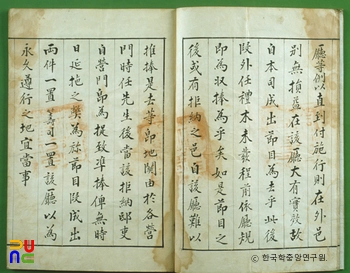 廳等則以直到付施行則在外邑
別無損益在該廳大有實效故
自本司成出節目爲去乎此後
段外任禮木未發程前依廳規
卽爲收捧爲乎矣如是節目之
後或有拒納之邑自該廳難以
推捧是去等卽地關由於各營
門時任先生後當該拒納邸吏
自營門卽爲捉致準捧俾無時
日延拖之弊爲旀節目段成出
兩件一置壽司一置該廳以爲
永久遵行之地宜當事
한국학중앙연구원